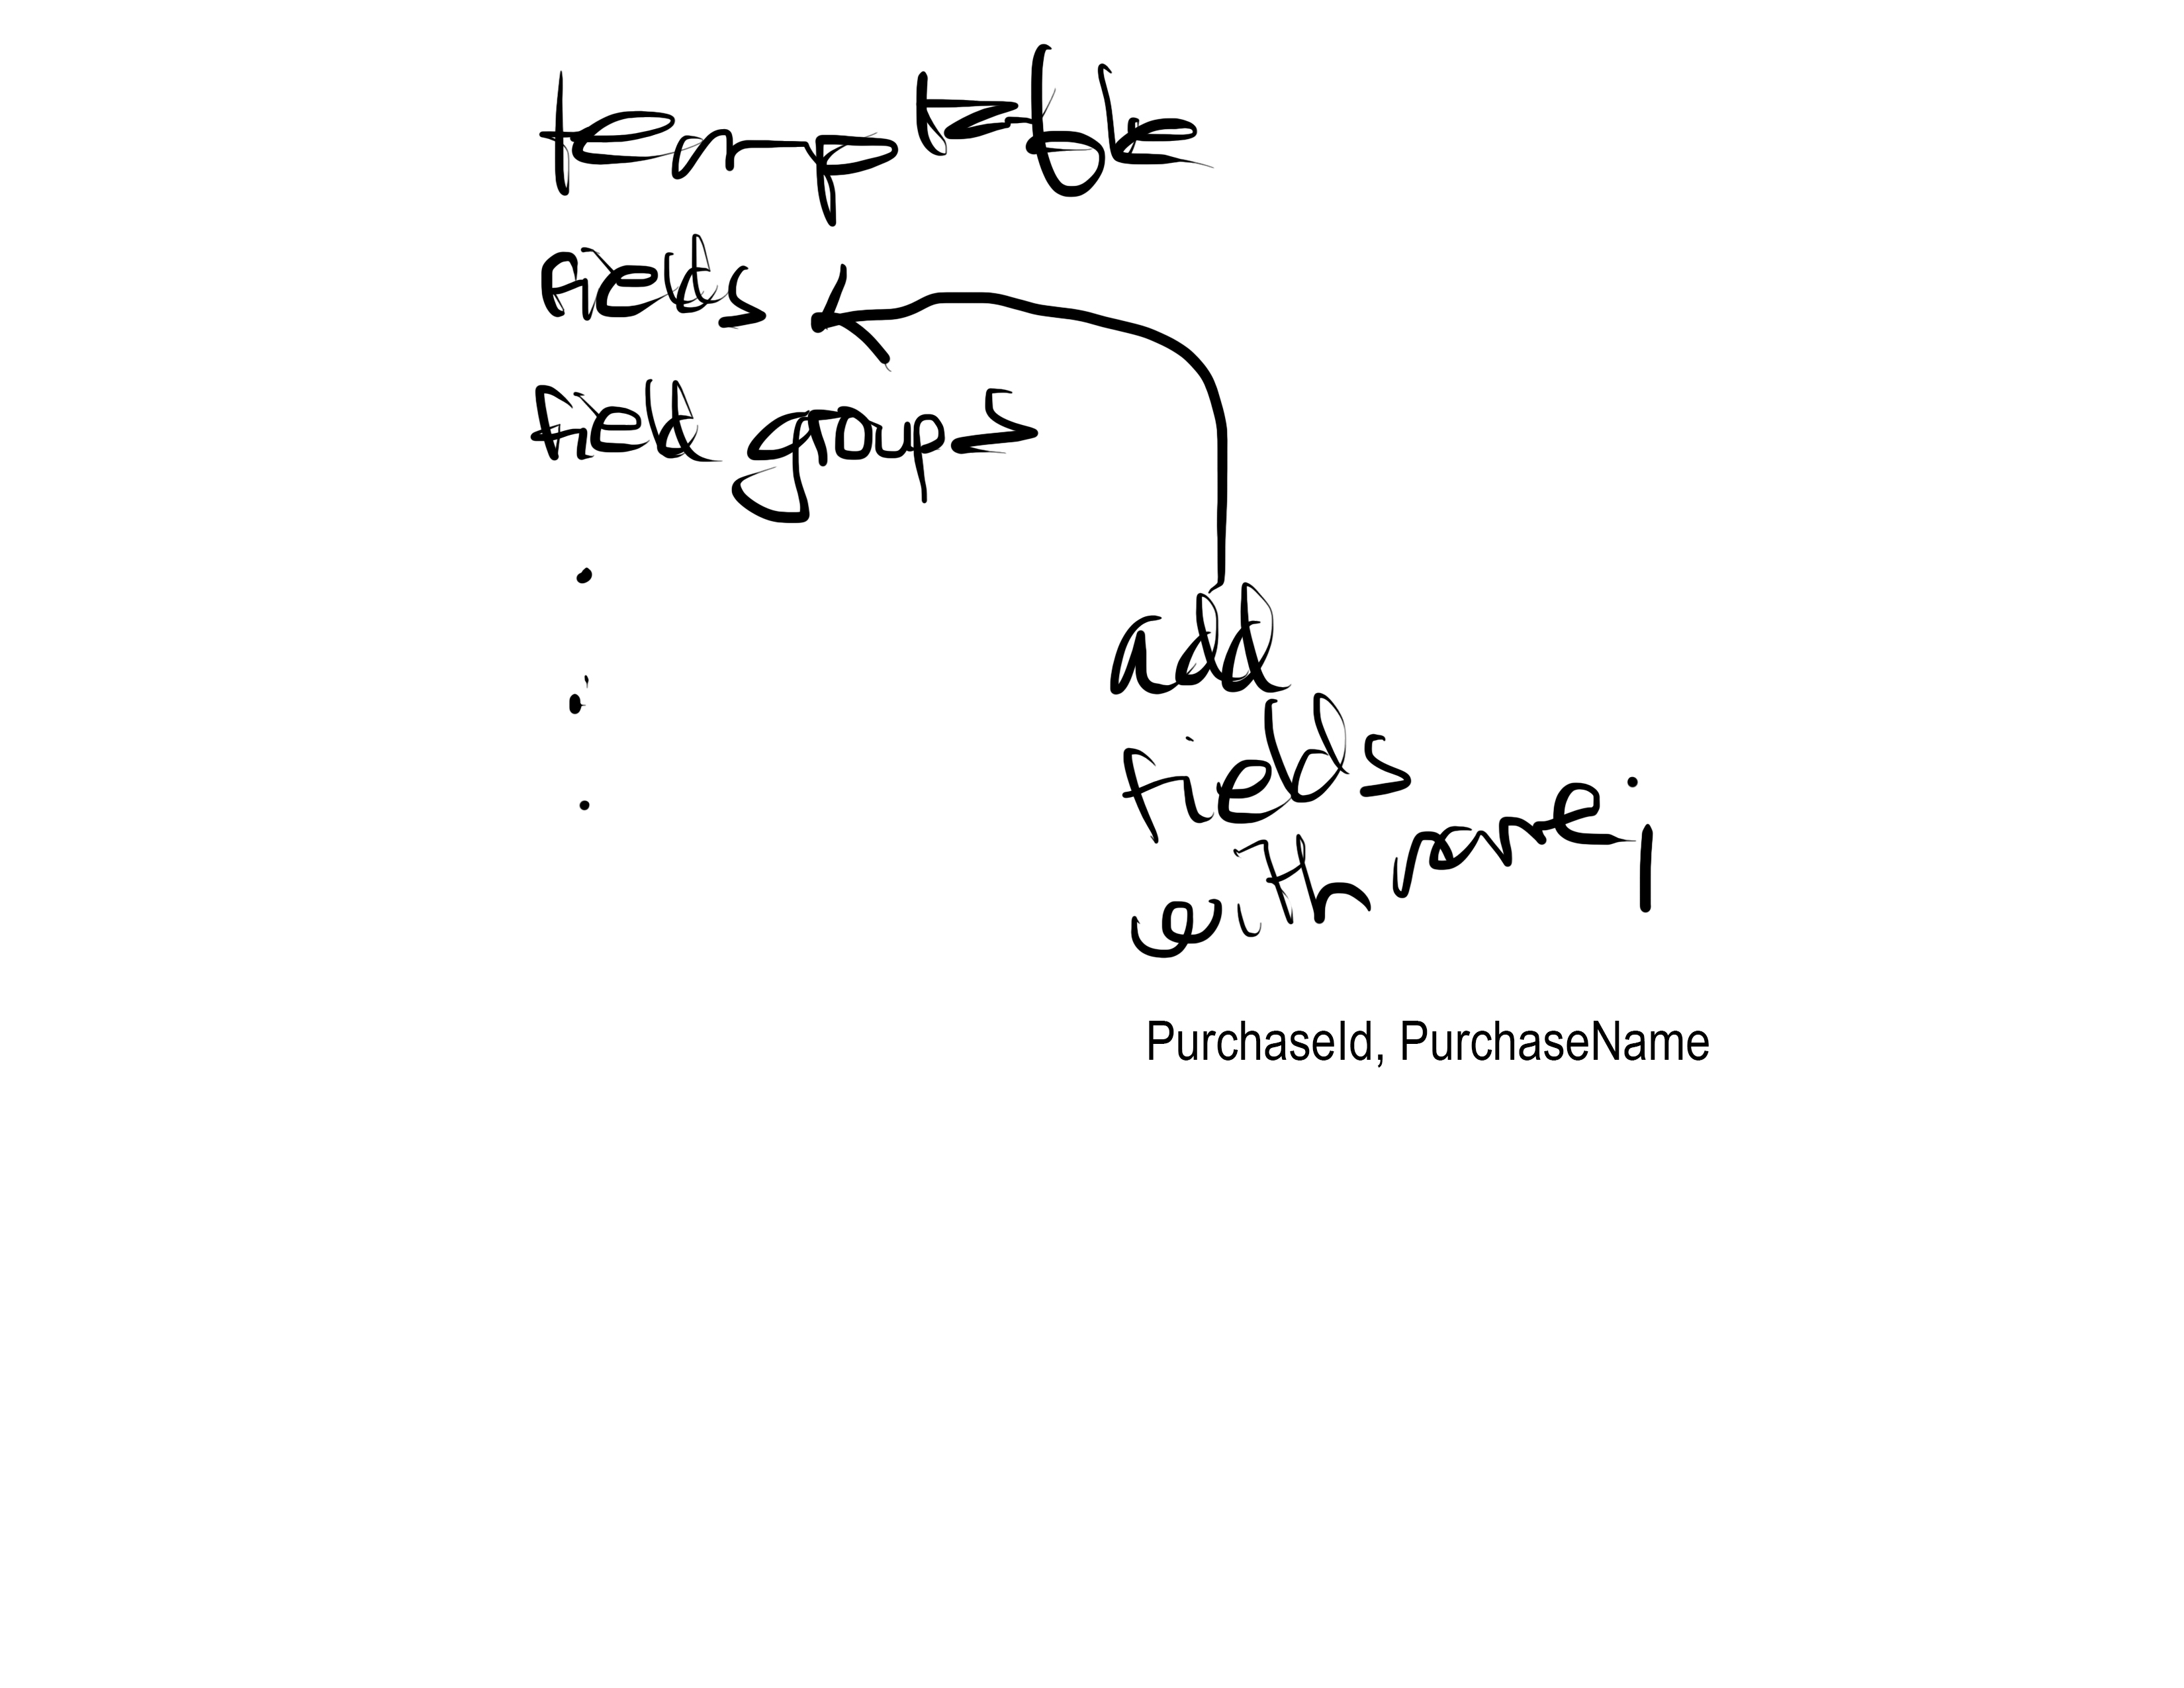 temp table
fields
field groups
add
fields
with name;
PurchaseId, PurchaseName